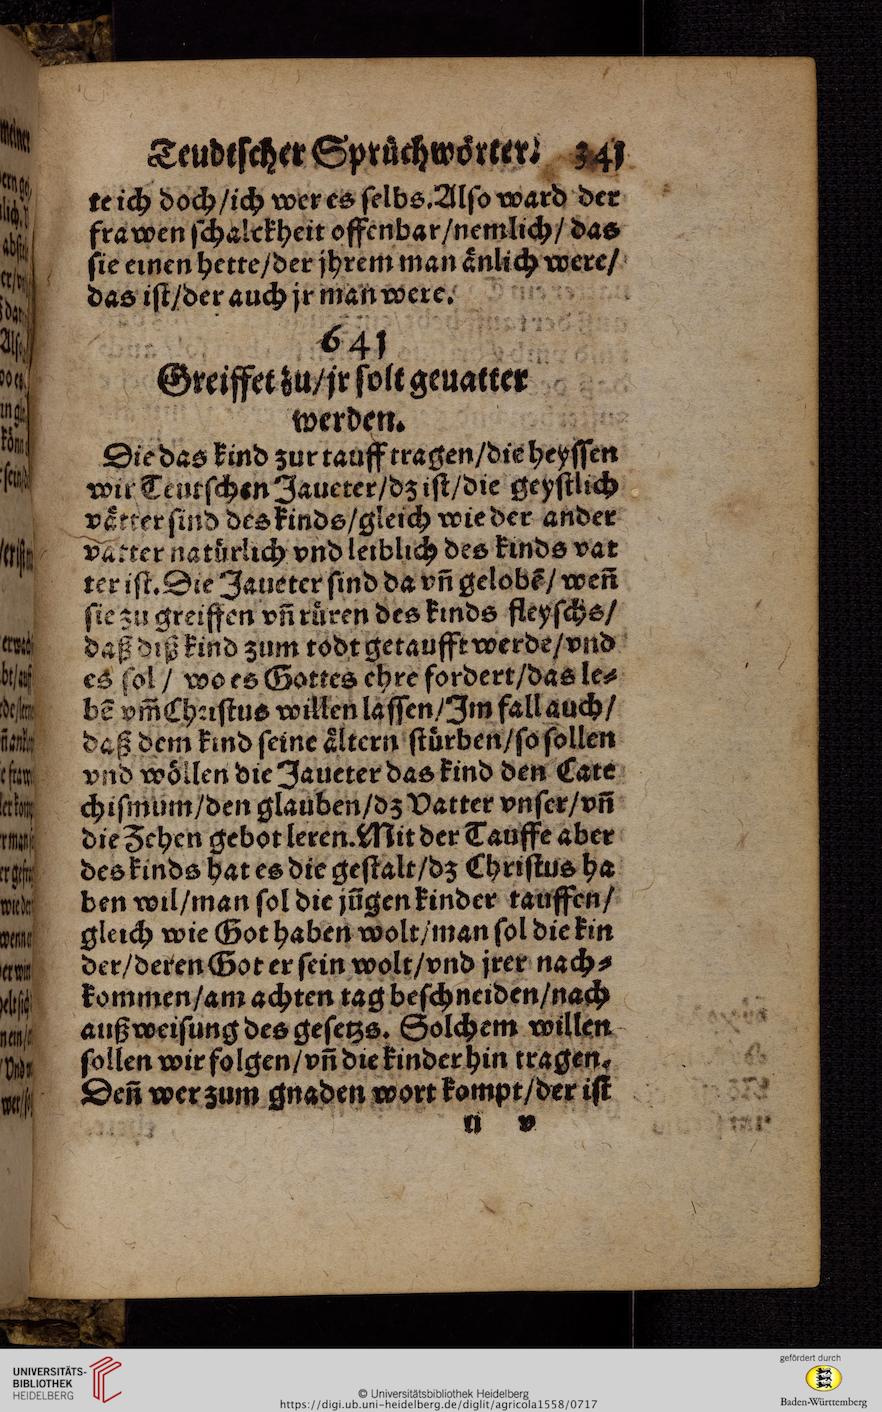 Teudtſcher Spruͤchwoͤrter. 341
te ich doch/ich wer es ſelbs. Alſo ward der
frawen ſchalckheit offenbar/nemlich/ das
ſie einen hette/der jhrem man aͤnlich were/
das iſt/der auch jr man were.
641
Greiffet zu/jr ſolt geuatter
werden.
Die das kind zur tauff tragen/die heyſſen
wir Teutſchen Jaueter/dz iſt/die geyſtlich
vaͤtter ſind des kinds/gleich wie der ander
vatter natuͤrlich vnd leiblich des kinds vat
ter iſt. Die Jaueter ſind da vñ gelobẽ/ weñ
ſie zu greiffen vñ ruͤren des kinds fleyſchs/
daß diß kind zum todt getaufft werde/vnd
es ſol / wo es Gottes ehre fordert/das le⸗
bẽ vm̃ Chriſtus willen laſſen/Im fall auch/
daß dem kind ſeine aͤltern ſtuͤrben/ſo ſollen
vnd woͤllen die Jaueter das kind den Cate
chiſmum/den glauben/dz Vatter vnſer/vñ
die Zehen gebot leren. Mit der Tauffe aber
des kinds hat es die geſtalt/dz Chriſtus ha
ben wil/man ſol die jũgen kinder tauffen/
gleich wie Got haben wolt/man ſol die kin
der/deren Got er ſein wolt/vnd jrer nach⸗
kommen/am achten tag beſchneiden/nach
außweiſung des geſetzs. Solchem willen
ſollen wir folgen/vñ die kinder hin tragen.
Deñ wer zum gnaden wort kompt/der iſt
v
UNIVERSITÄTS-
BIBLIOTHEK
HEIDELBERG
© Universitätsbibliothek Heidelberg
https://digi.ub.uni-heidelberg.de/diglit/agricola1558/0717
gefördert durch
Baden-Württemberg